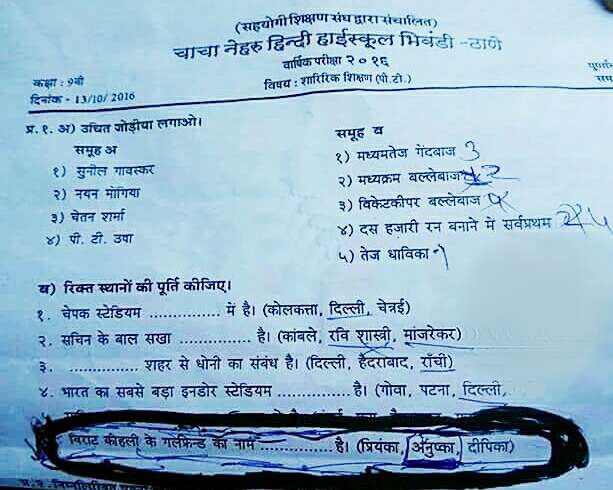 (सहयोगी शिक्षण संघ द्वारा संचालित)
चाचा नेहरु हिन्दी हाईस्कूल भिवंडी -ठाणे
वार्षिक परीक्षा २०१६
कक्षा : 9वी
विषय : शारिरिक शिक्षण (पी.टी.)
दिनांक - 13/10/ 2016
प्र.१. अ) उचित जोड़ीया लगाओ।
समूह अ समूह ब
१) सुनील गावस्कर १) मध्यमतेज गेंदबाज 3
२) नयन मोंगिया २) मध्यक्रम बल्लेबाज 2
३) चेतन शर्मा ३) विकेटकीपर बल्लेबाज
४) पी. टी. उषा ४) दस हजारी रन बनाने में सर्वप्रथम
५) तेज धाविका
ब) रिक्त स्थानों की पूर्ति कीजिए।
१. चेपक स्टेडियम ............... में है। (कोलकत्ता, दिल्ली, चेन्नई)
२. सचिन के बाल सखा ............... है। (कांबले, रवि शास्त्री, मांजरेकर)
३. ............... शहर से धोनी का संबंध है। (दिल्ली, हैदराबाद, राँची)
४. भारत का सबसे बड़ा इनडोर स्टेडियम ............... है। (गोवा, पटना, दिल्ली,
विराट कोहली के गर्लफ्रेन्ड का नाम ............... है। (प्रियंका, अनुष्का, दीपिका)